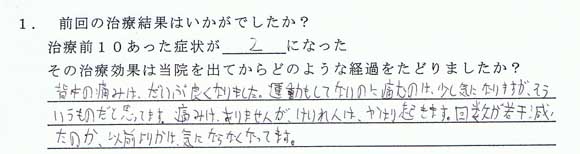 1. 前回の治療結果はいかがでしたか?
治療前10あった症状が 2 になった
その治療効果は当院を出てからどのような経過をたどりましたか?
背中の痛みは、だいぶ良くなりました。運動もしてないのに痛むのは、少し気になりますが、そう
いうものだと思ってます。痛みは、ありませんが、けいれんは、やはり起きます。回数が若干減っ
たのか、以前よりかは、気にならなくなってます。